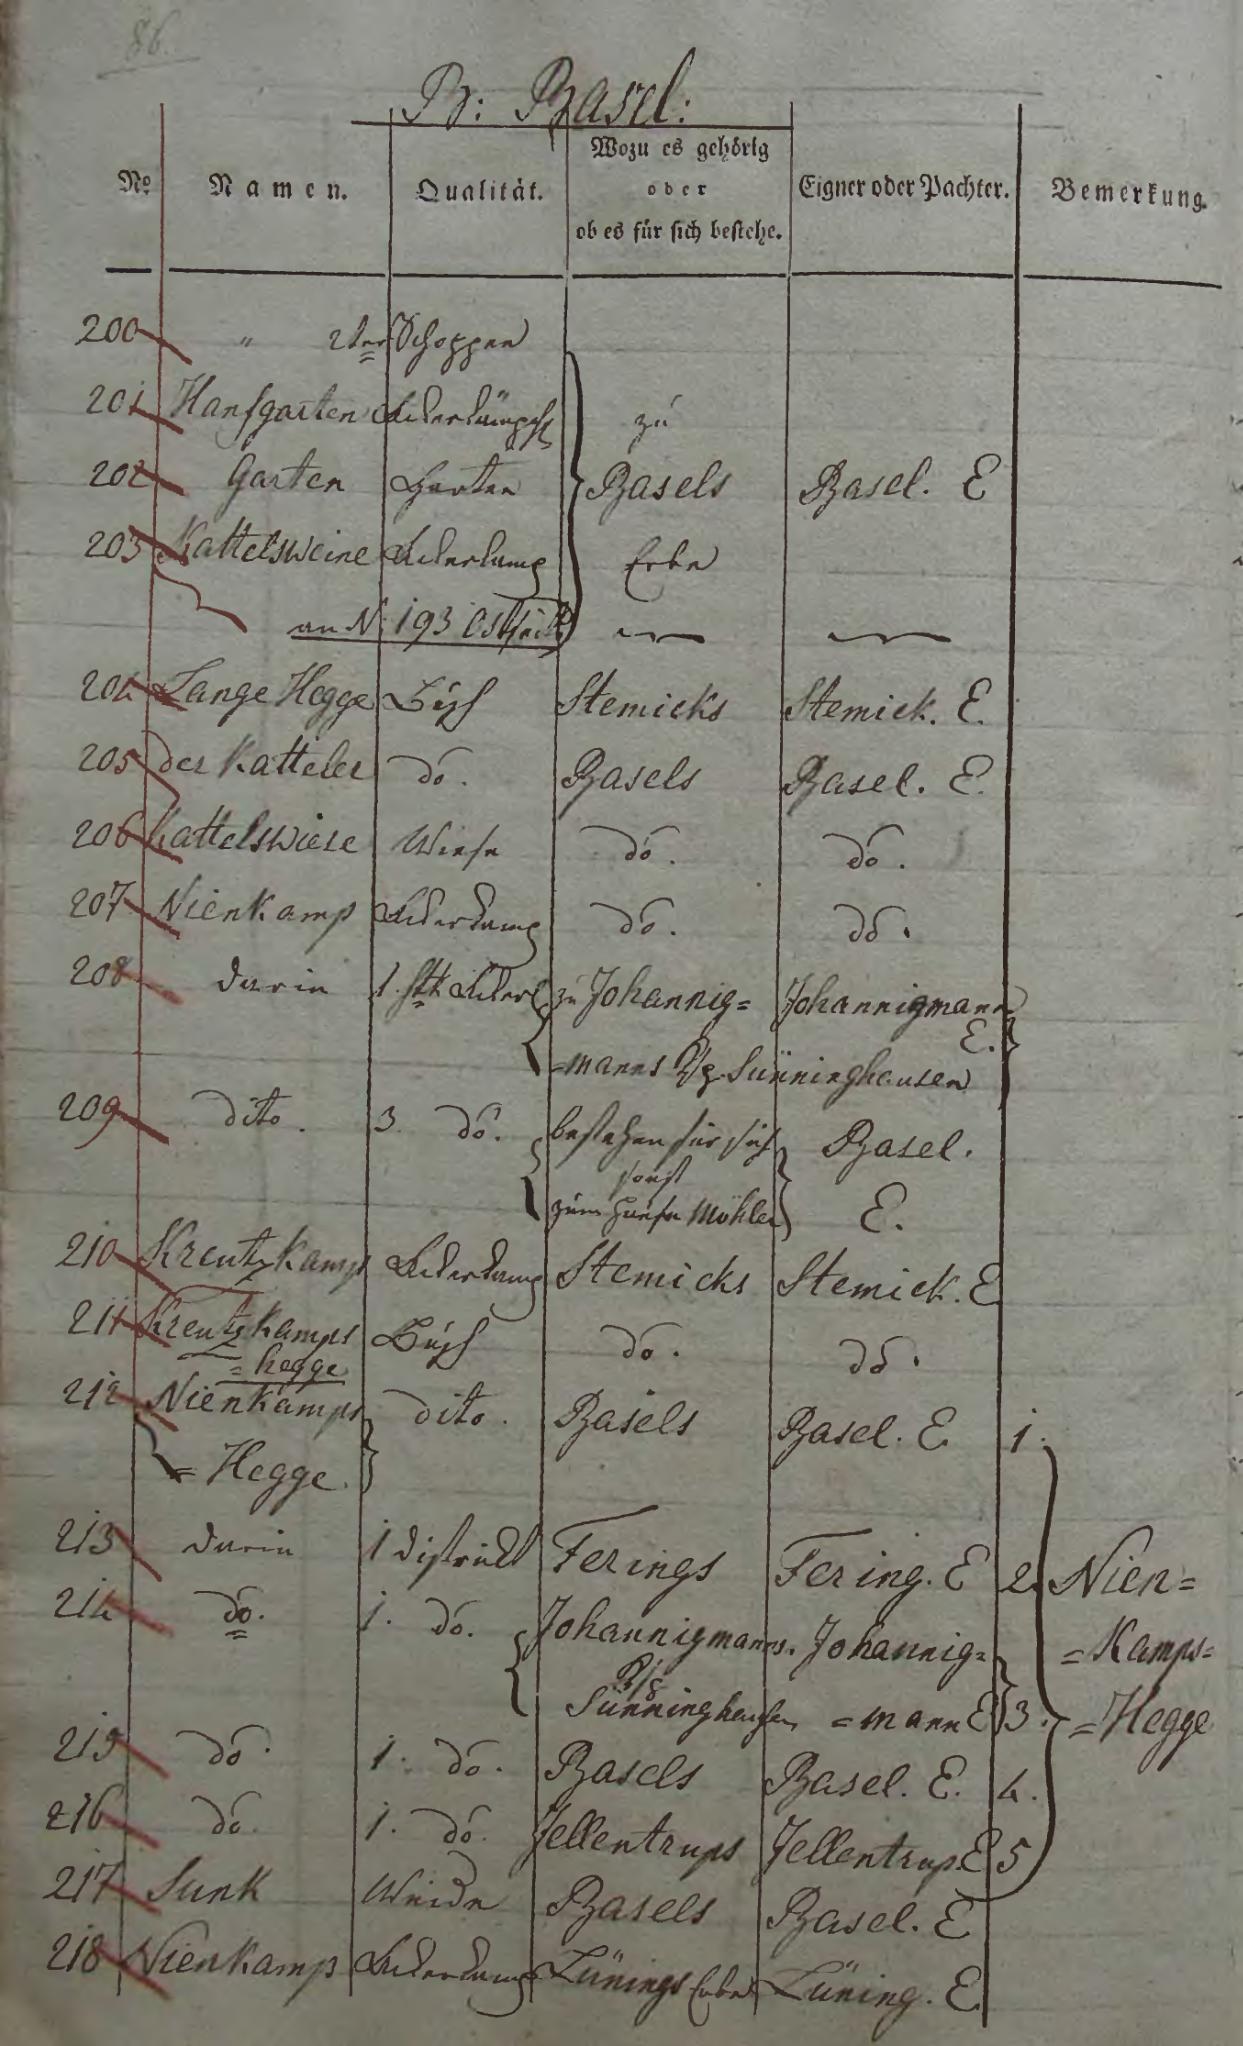 86.
B: Basel:
No. Namen. Qualität. Wozu es gehörig oder ob es für sich bestehe. Eigner oder Pachter. Bemerkung.
200 " 2ter Schoppen
201 Hanfgarten zu
202 Garten Garten Basels Basel. E
203 Kattelsweine Ackerkamp Erbe
an N. 193 Ostseite
204 Lange Hegge Büsch Stemicks Stemick. E.
205 Der Katteler do. Basels Basel. E.
206 Kattelswiese Wiese do. do.
207 Nienkamp Ackerkamp do. do.
208 darin 1. Stk Ackerl. zu Johannig= Johannigmann
E.
=manns Sünninghausen
209 dito. 3. do. bestehen für sich Basel.
sonst
zum Hofe Möhler E.
210 Kreutzkamp Ackerkamp Stemicks Stemick. E
211 Kreutzkamps Büsch do. do.
=hegge
212 Nienkamps dito. Basels Basel. E. 1.
=Hegge.
213 darin 1 district Ferings Fering. E 2. Nien=
214 do. 1. do. Johannigmanns. Johannig= =Kamps=
Sünninghausen =mann E 3. =Hegge
215 do. 1. do. Basels Basel. E. 4.
216 do. 1. do. Jellentrups Jellentrup. E 5
217 Sunk Weide Basels Basel. E
218 Nienkamp Ackerkamp Lünings Erbe Lüning. E.